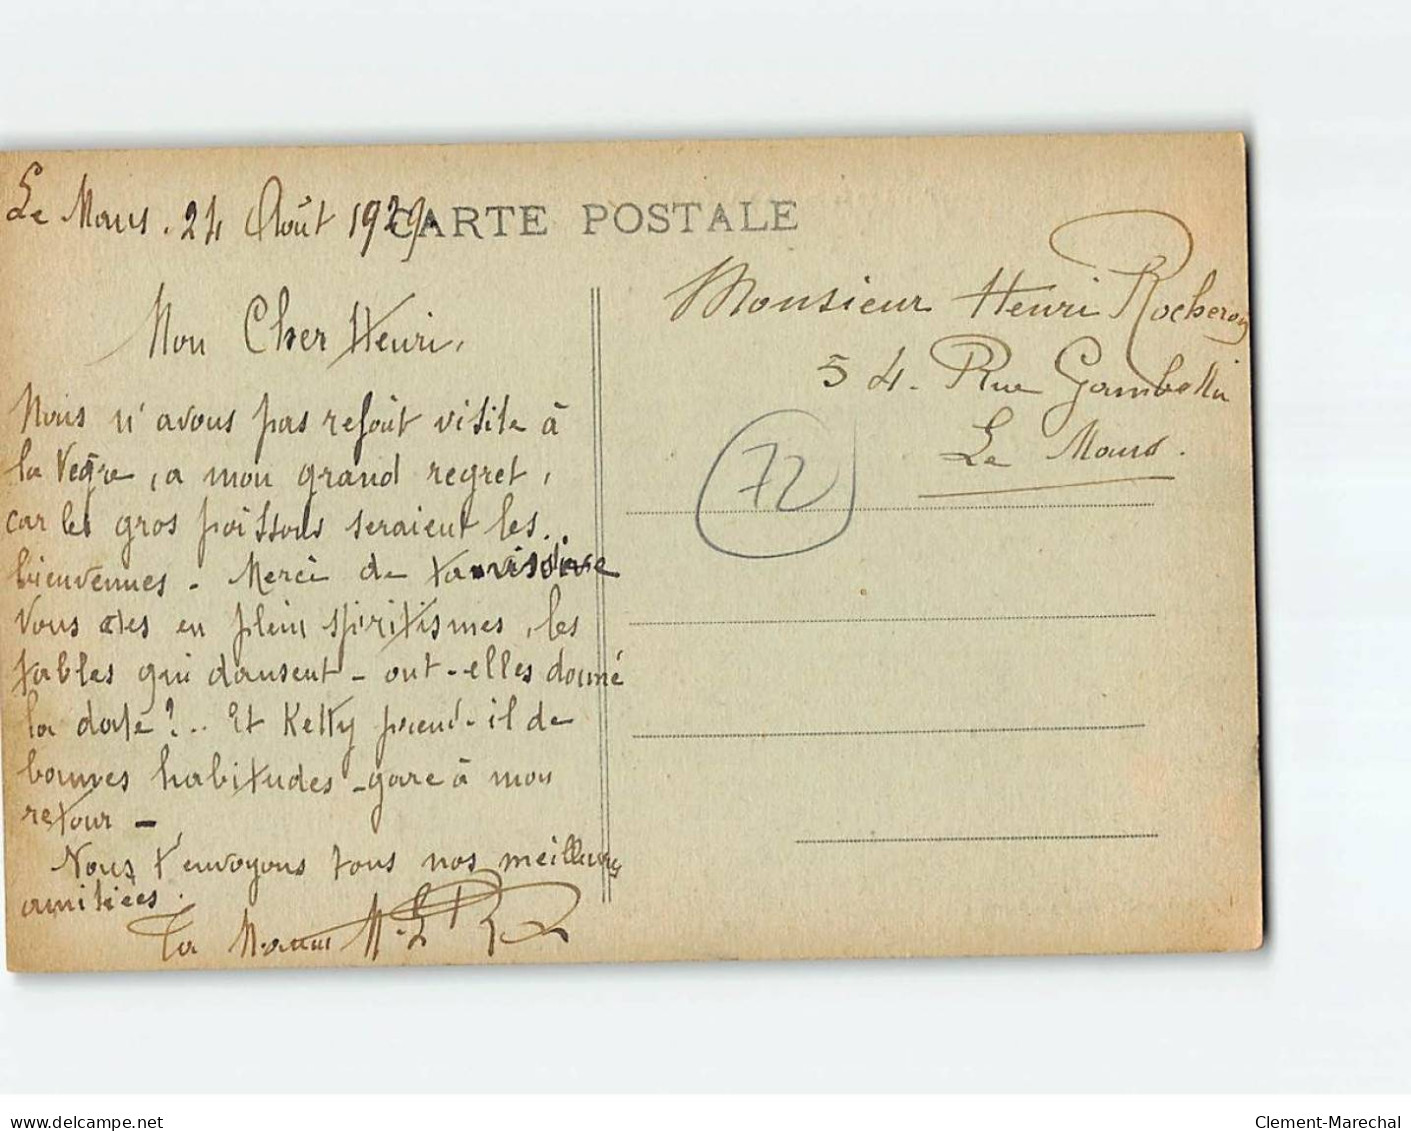 Le Mans. 24 Août 1929
CARTE POSTALE
Mon Cher Henri,
Nous n'avons pas refait visite à
la Vègre, a mon grand regret,
car les gros poissons seraient les
bienvenues - Merci de ta
Vous êtes en plein spiritismes, les
tables qui dansent - ont-elles donné
la date ?.. Et Ketty prend-il de
bonnes habitudes - gare à mon
retour -
Nous t'envoyons tous nos meilleures
amitiées.
Ta Maman
Monsieur Henri Rocheron
54. Rue Gambetta
Le Mans.
72
delcampe.net
Clement-Marechal